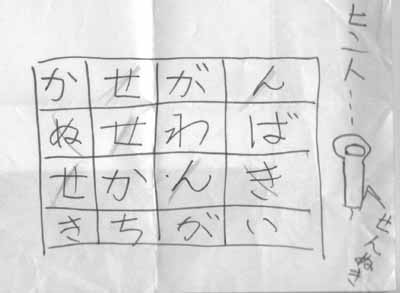 かせがん
ぬせわば
せかんき
きちがい
ヒント…
せんぬき